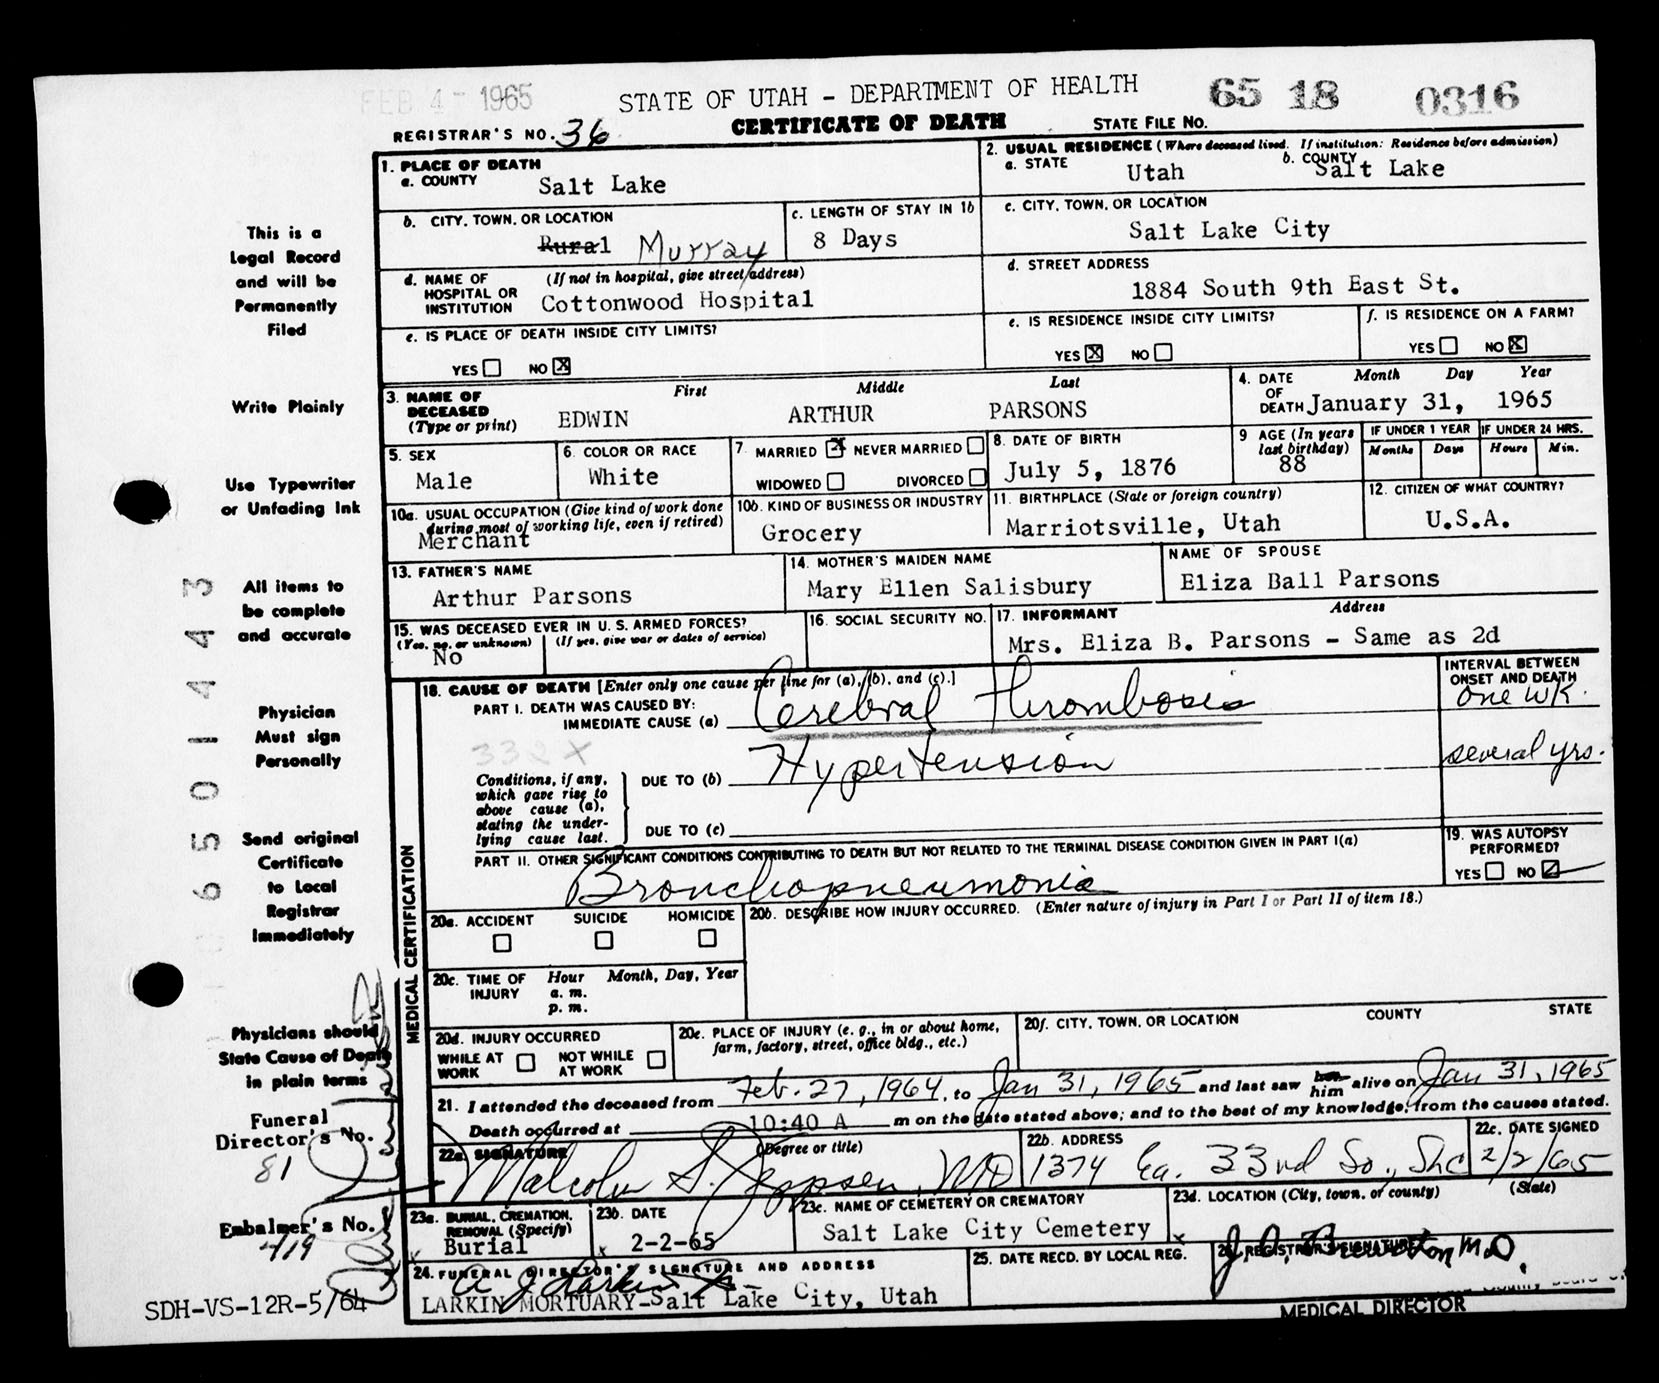 FEB 4 - 1965
STATE OF UTAH - DEPARTMENT OF HEALTH
65 18 0316
REGISTRAR'S NO. 36
CERTIFICATE OF DEATH
STATE FILE NO.
1. PLACE OF DEATH
a. COUNTY
Salt Lake
2. USUAL RESIDENCE (Where deceased lived. If institution: Residence before admission)
a. STATE
Utah
b. COUNTY
Salt Lake
b. CITY, TOWN, OR LOCATION
Rural Murray
c. LENGTH OF STAY IN 1b
8 Days
c. CITY, TOWN, OR LOCATION
Salt Lake City
d. NAME OF HOSPITAL OR INSTITUTION
(If not in hospital, give street address)
Cottonwood Hospital
d. STREET ADDRESS
1884 South 9th East St.
e. IS PLACE OF DEATH INSIDE CITY LIMITS?
YES NO X
e. IS RESIDENCE INSIDE CITY LIMITS?
YES X NO
f. IS RESIDENCE ON A FARM?
YES NO X
3. NAME OF DECEASED
(Type or print)
First Middle Last
EDWIN ARTHUR PARSONS
4. DATE OF DEATH
Month Day Year
January 31, 1965
5. SEX
Male
6. COLOR OR RACE
White
7. MARRIED X NEVER MARRIED
WIDOWED DIVORCED
8. DATE OF BIRTH
July 5, 1876
9 AGE (In years last birthday)
88
IF UNDER 1 YEAR
Months Days
IF UNDER 24 HRS.
Hours Min.
10a. USUAL OCCUPATION (Give kind of work done during most of working life, even if retired)
Merchant
10b. KIND OF BUSINESS OR INDUSTRY
Grocery
11. BIRTHPLACE (State or foreign country)
Marriotsville, Utah
12. CITIZEN OF WHAT COUNTRY?
U.S.A.
13. FATHER'S NAME
Arthur Parsons
14. MOTHER'S MAIDEN NAME
Mary Ellen Salisbury
NAME OF SPOUSE
Eliza Ball Parsons
15. WAS DECEASED EVER IN U. S. ARMED FORCES?
(Yes, no, or unknown) (If yes, give war or dates of service)
No
16. SOCIAL SECURITY NO.
17. INFORMANT Address
Mrs. Eliza B. Parsons - Same as 2d
MEDICAL CERTIFICATION
18. CAUSE OF DEATH [Enter only one cause per line for (a), (b), and (c).]
INTERVAL BETWEEN ONSET AND DEATH
PART I. DEATH WAS CAUSED BY:
IMMEDIATE CAUSE (a) Cerebral Thrombosis
one wk.
332X
Conditions, if any, which gave rise to above cause (a), stating the underlying cause last.
DUE TO (b) Hypertension
several yrs.
DUE TO (c)
PART II. OTHER SIGNIFICANT CONDITIONS CONTRIBUTING TO DEATH BUT NOT RELATED TO THE TERMINAL DISEASE CONDITION GIVEN IN PART I(a)
Bronchopneumonia
19. WAS AUTOPSY PERFORMED?
YES NO
20a. ACCIDENT SUICIDE HOMICIDE
20b. DESCRIBE HOW INJURY OCCURRED. (Enter nature of injury in Part I or Part II of item 18.)
20c. TIME OF INJURY
Hour Month, Day, Year
a. m.
p. m.
20d. INJURY OCCURRED
WHILE AT WORK NOT WHILE AT WORK
20e. PLACE OF INJURY (e. g., in or about home, farm, factory, street, office bldg., etc.)
20f. CITY, TOWN, OR LOCATION COUNTY STATE
21. I attended the deceased from Feb. 27, 1964, to Jan 31, 1965 and last saw her him alive on Jan 31, 1965
Death occurred at 10:40 A m on the date stated above; and to the best of my knowledge, from the causes stated.
22a. SIGNATURE (Degree or title)
Malcolm S. Jeppsen, MD
22b. ADDRESS
1374 Ea. 33rd So., Slc
22c. DATE SIGNED
2/2/65
23a. BURIAL, CREMATION, REMOVAL (Specify)
Burial
23b. DATE
2-2-65
23c. NAME OF CEMETERY OR CREMATORY
Salt Lake City Cemetery
23d. LOCATION (City, town, or county) (State)
24. FUNERAL DIRECTOR'S SIGNATURE AND ADDRESS
A J Larkin Jr
LARKIN MORTUARY-Salt Lake City, Utah
25. DATE RECD. BY LOCAL REG.
26. REGISTRAR'S SIGNATURE
M.D.
MEDICAL DIRECTOR
This is a
Legal Record
and will be
Permanently
Filed
Write Plainly
Use Typewriter
or Unfading Ink
All items to
be complete
and accurate
Physician
Must sign
Personally
Send original
Certificate
to Local
Registrar
Immediately
Physicians should
State Cause of Death
in plain terms
Funeral
Director's No.
81
Embalmer's No.
419
SDH-VS-12R-5/64
6 5 0 1 4 4 3